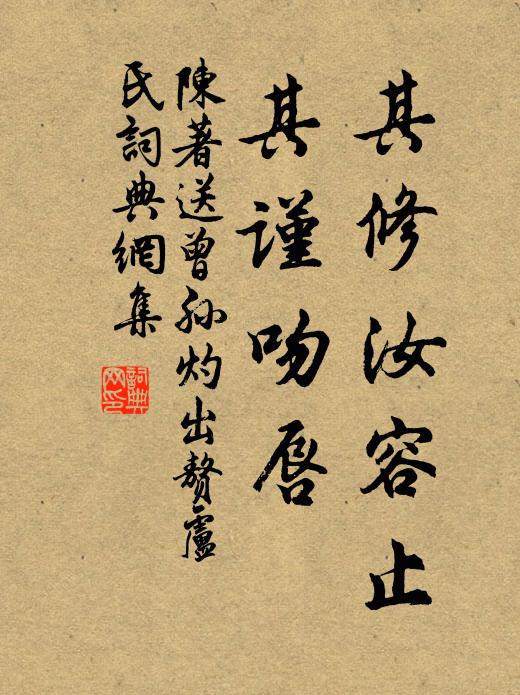 其修汝容止
其谨吻唇
陳著送曾孙灼出贅盧
氏詞典網集
詞典网印